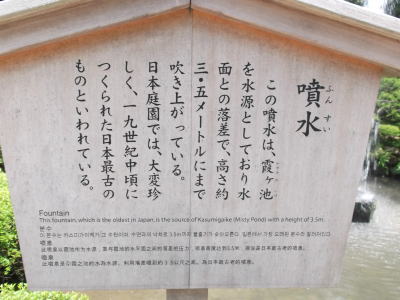 噴水
ふんすい
この噴水は、霞ヶ池
を水源としており水
面との落差で、高さ約
三・五メートルにまで
吹き上がっている。
日本庭園では、大変珍
しく、一九世紀中頃に
つくられた日本最古の
ものといわれている。
Fountain
This fountain, which is the oldest in Japan, is the source of Kasumigaike (Misty Pond) with a height of 3.5m.
분수
喷泉
噴泉